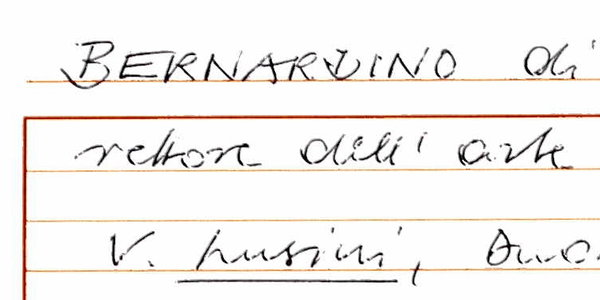 BERNARDINO di
rettore dell' arte
V. Lusini, Duo